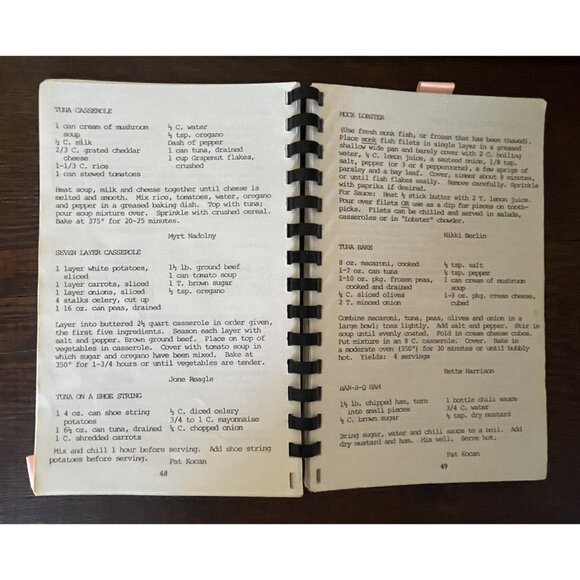 TUNA CASSEROLE
1 can cream of mushroom soup
½ C. milk
2/3 C. grated cheddar cheese
1-1/3 C. rice
1 can stewed tomatoes
½ C. water
½ tsp. oregano
Dash of pepper
1 can tuna, drained
1 cup Grapenut flakes, crushed
Heat soup, milk and cheese together until cheese is
melted and smooth. Mix rice, tomatoes, water, oregano
and pepper in a greased baking dish. Top with tuna;
pour soup mixture over. Sprinkle with crushed cereal.
Bake at 375° for 20-25 minutes.
Myrt Nadolny
SEVEN LAYER CASSEROLE
1 layer white potatoes, sliced
1 layer carrots, sliced
1 layer onions, sliced
4 stalks celery, cut up
1 16 oz. can peas, drained
1½ lb. ground beef
1 can tomato soup
1 T. brown sugar
½ tsp. oregano
Layer into buttered 2½ quart casserole in order given,
the first five ingredients. Season each layer with
salt and pepper. Brown ground beef. Place on top of
vegetables in casserole. Cover with tomato soup in
which sugar and oregano have been mixed. Bake at
350° for 1-3/4 hours or until vegetables are tender.
Jone Reagle
TUNA ON A SHOE STRING
1 4 oz. can shoe string potatoes
1 6½ oz. can tuna, drained
1 C. shredded carrots
½ C. diced celery
3/4 to 1 C. mayonnaise
½ C. chopped onion
Mix and chill 1 hour before serving. Add shoe string
potatoes before serving.
Pat Kocan
48
MOCK LOBSTER
(Use fresh monk fish, or frozen that has been thawed).
Place monk fish filets in single layer in a greased
shallow wide pan and barely cover with 2 C. boiling
water, ½ C. lemon juice, a sauteed onion, 1/8 tsp.
salt, pepper (or 3 or 4 peppercorns), a few sprigs of
parsley and a bay leaf. Cover, simmer about 8 minutes,
or until fish flakes easily. Remove carefully. Sprinkle
with paprika if desired.
For Sauce: Heat ½ stick butter with 2 T. lemon juice.
Pour over filets OR use as a dip for pieces on tooth-
picks. Filets can be chilled and served in salads,
casseroles or in "lobster" chowder.
Nikki Berlin
TUNA BAKE
8 oz. macaroni, cooked
1-7 oz. can tuna
1-10 oz. pkg. frozen peas, cooked and drained
½ C. sliced olives
2 T. minced onion
½ tsp. salt
½ tsp. pepper
1 can cream of mushroom soup
1-3 oz. pkg. cream cheese, cubed
Combine macaroni, tuna, peas, olives and onion in a
large bowl; toss lightly. Add salt and pepper. Stir in
soup until evenly coated. Fold in cream cheese cubes.
Put mixture in an 8 C. casserole. Cover. Bake in
a moderate oven (350°) for 30 minutes or until bubbly
hot. Yields: 4 servings
Bette Harrison
BAR-B-Q HAM
1½ lb. chipped ham, torn into small pieces
½ C. brown sugar
1 bottle chili sauce
3/4 C. water
½ tsp. dry mustard
String sugar, water and chili sauce to a boil. Add
dry mustard and ham. Mix well. Serve hot.
Pat Kocan
49